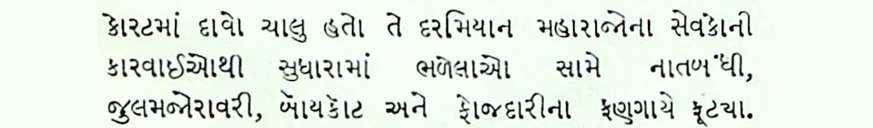 કોરટમાં દાવો ચાલુ હતો તે દરમિયાન મહારાજોના સેવકોની
કારવાઈઓથી સુધારામાં ભળેલાઓ સામે નાતબંધી,
જુલમજોરાવરી, બૉયકૉટ અને ફોજદારીના ફણગાયે ફૂટ્યા.